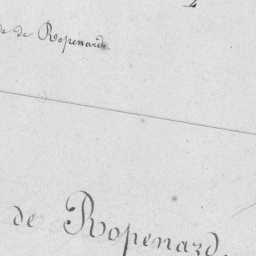 de de Ropenard
de Ropenard.